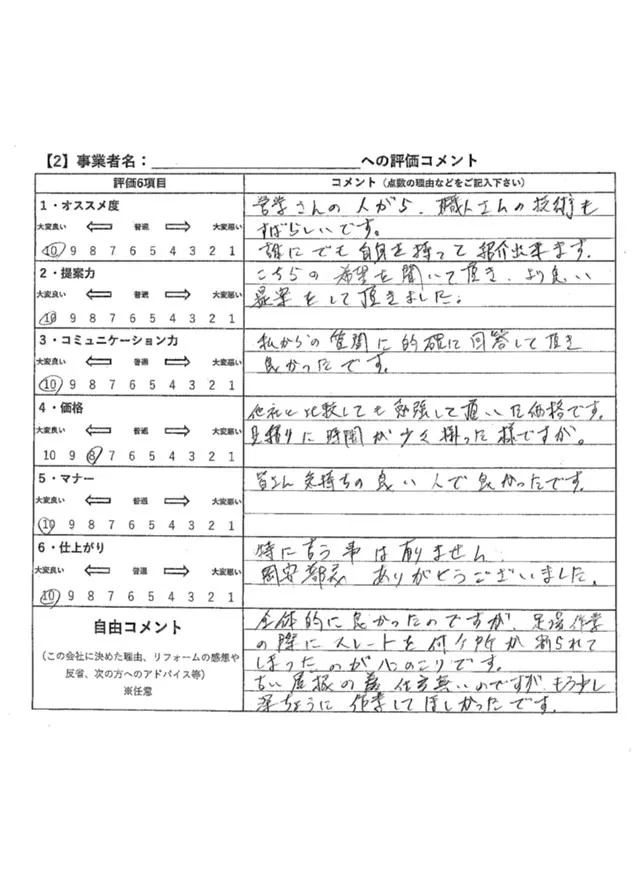 【2】事業者名： への評価コメント
評価6項目
コメント（点数の理由などをご記入下さい）
1・オススメ度
大変良い 普通 大変悪い
10 9 8 7 6 5 4 3 2 1
営業さんの人がら、職人さんの技術も
すばらしいです。
誰にでも自身を持って紹介出来ます。
2・提案力
大変良い 普通 大変悪い
10 9 8 7 6 5 4 3 2 1
こちらの希望を聞いて頂き、より良い
提案をして頂きました。
3・コミュニケーション力
大変良い 普通 大変悪い
10 9 8 7 6 5 4 3 2 1
私からの質問に的確に回答して頂き
良かったです。
4・価格
大変良い 普通 大変悪い
10 9 8 7 6 5 4 3 2 1
他社と比較しても勉強して頂いた価格です。
見積りに時間が少く掛った様ですが。
5・マナー
大変良い 普通 大変悪い
10 9 8 7 6 5 4 3 2 1
皆さん気持ちの良い人で良かったです。
6・仕上がり
大変良い 普通 大変悪い
10 9 8 7 6 5 4 3 2 1
特に言う事は有りません
ありがとうございました。
自由コメント
（この会社に決めた理由、リフォームの感想や
反省、次の方へのアドバイス等）
※任意
全体的に良かったのですが、足場作業
の際にスレートを何ヶ所か割られて
しまったのが心のこりです。
古い屋根の為仕方無いのですがもう少し
深ちょうに作業してほしかったです。